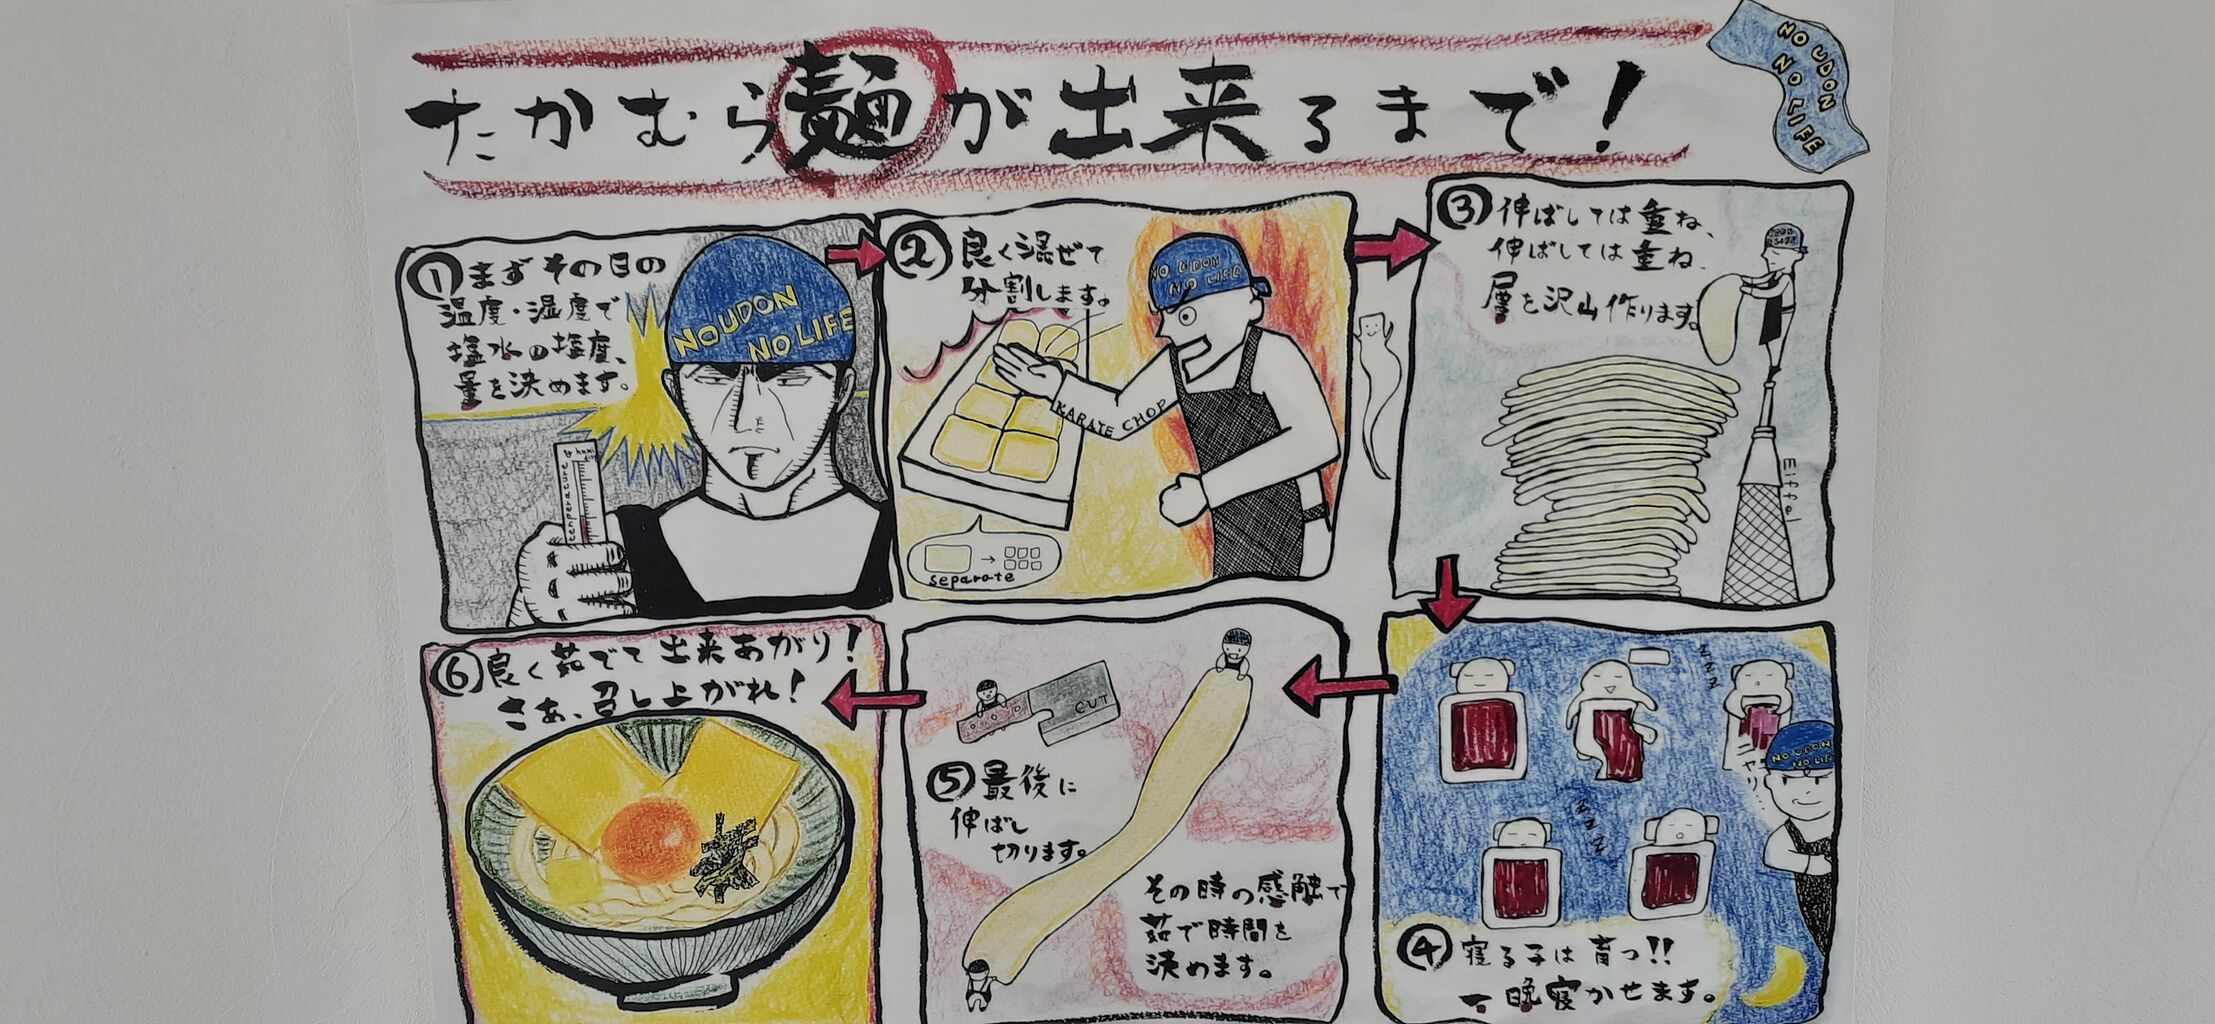 たかむら麺が出来るまで！
NO UDON
NO LIFE
①まずその日の
温度・湿度で
塩水の塩度、
量を決めます。
NO UDON
NO LIFE
temperature
②良く混ぜて
分割します。
NO UDON
NO LIFE
KARATE CHOP
separate
③伸ばしては重ね、
伸ばしては重ね、
層を沢山作ります。
Eiffel
④寝る子は育つ!!
一晩寝かせます。
zzz
zzz
ニヤリ
NO UDON
NO LIFE
⑤最後に
伸ばし
切ります。
CUT
その時の感触で
茹で時間を
決めます。
⑥良く茹でて出来あがり！
さあ、召し上がれ！